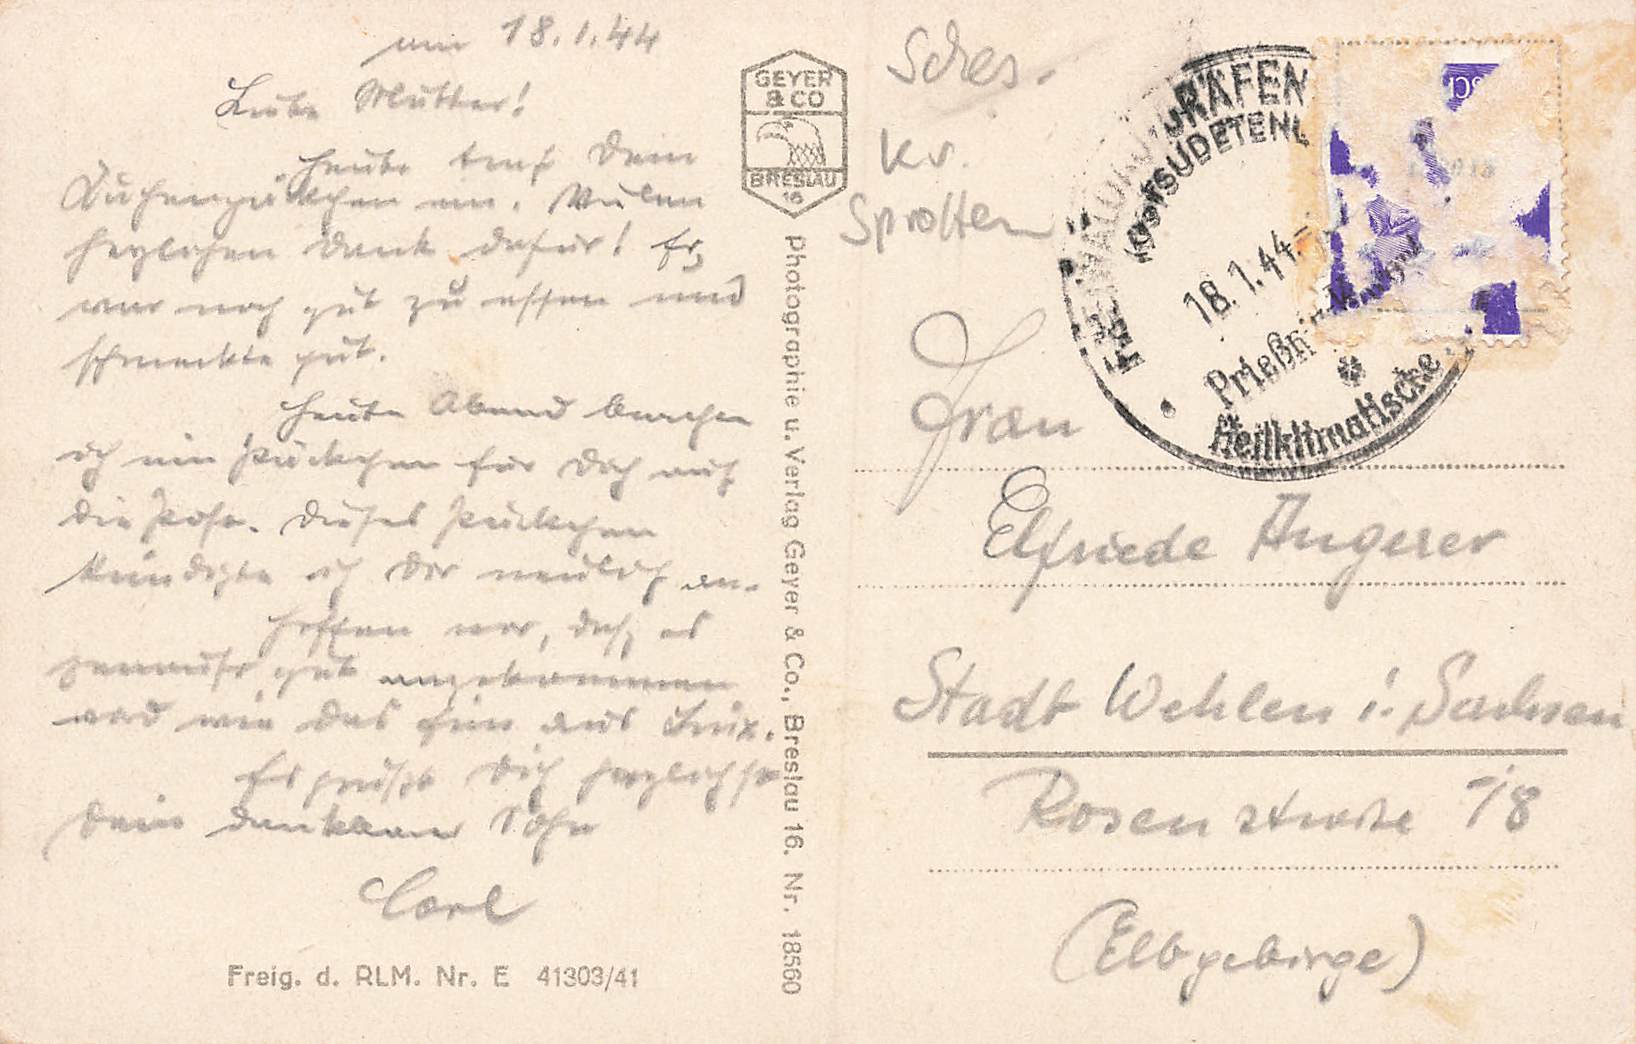 am 18.1.44
Liebe Mutter!
Heute traf Dein
Kuchenpäckchen ein. Vielen
herzlichen Dank dafür! Er
war noch gut zu essen und
schmeckte gut.
Heute Abend bringe
ich ein Päckchen für Dich auf
die Post. Dieses Päckchen
kündigte ich Dir neulich an.
Hoffen wir, daß es
genauso gut angekommen
wird wie das hin aus
Es grüßt Dich herzlichst
Dein dankbarer Sohn
Carl
Freig. d. RLM. Nr. E 41303/41
GEYER
& CO
BRESLAU
16
Photographie u. Verlag Geyer & Co., Breslau 16. Nr. 18560
Kr.
Sprotten
GRÄFEN
OSTSUDETENL
18.1.44
Prießni
Heilklimatische
Frau
Elfriede Angerer
Stadt Wehlen i. Sachsen
Rosenstraße 78
(Elbgebirge)